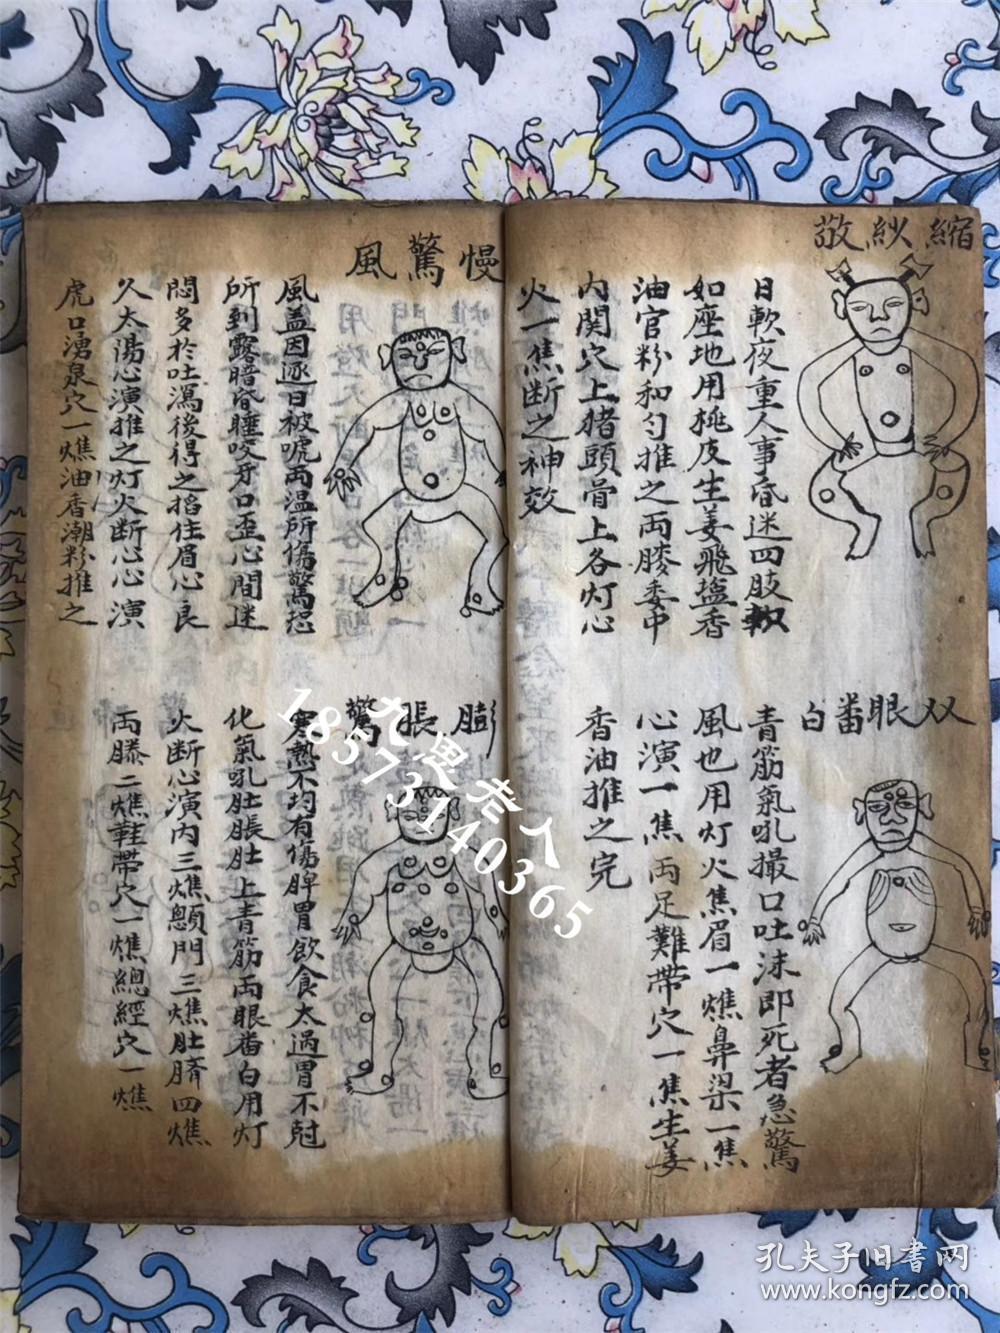 縮紗敬
日軟夜重人事昏迷四肢軟
如座地用桃皮生姜飛塩香
油官粉和勻推之両膝委中
内関穴上猪頭骨上各灯心
火一焦断之神效
双眼番白
青筋氣吼撮口吐沫即死者急驚
風也用灯火焦眉一燋鼻梁一焦
心演一焦両足難帶穴一焦生姜
香油推之完
慢驚風
風盖因逐日被唬両温所傷驚恐
所到露暗昏睡咬牙口歪心間迷
悶多於吐瀉後得之掐住眉心良
久太湯心演推之灯火断心心演
虎口湧泉穴一燋油香潮粉推之
膨脹驚
寒熱不均有傷脾胃飲食太過胃不尅
化氣吼肚脹肚上青筋両眼番白用灯
火断心演内三燋顖門三燋肚臍四燋
両膝二燋鞋帶穴一燋總經穴一燋
九思老人
18573140365
孔夫子旧書网
www.kongfz.com